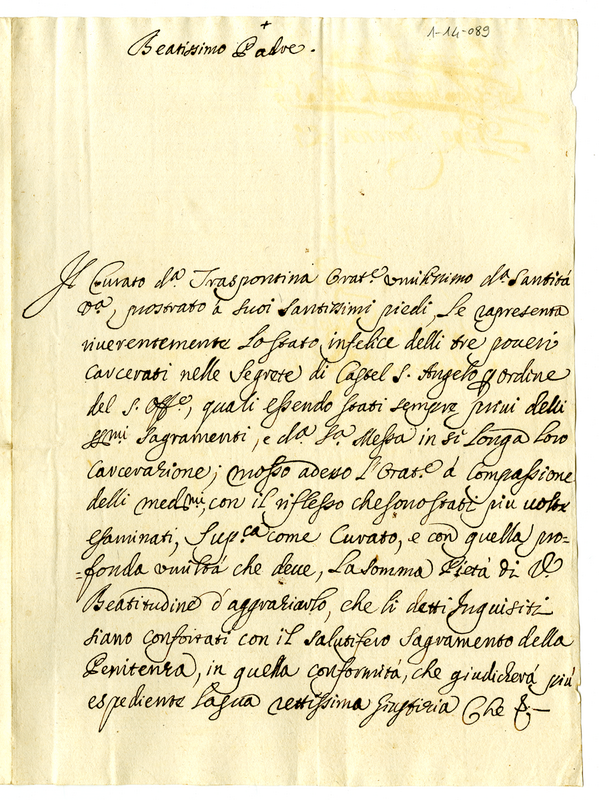 +
1-14-089
Beatissimo Padre.
Il Curato d.ª Traspontina Orat.e vmilissimo d.ª Santità
V.ª, prostrato a suoi Santissimi piedi, Le rapresenta
riverentemente Lo stato infelice delli tre poveri
Carcerati nelle Segrete di Castel S. Angelo p ordine
del S. Off.o, quali essendo stati sempre privi delli
SSmi Sagramenti, e d.ª S.ª Messa in sì Longa Loro
Carcerazione; mosso adesso l'Orat.e à Compassione
delli medmi, con il riflesso che sono stati più volte
esaminati, Sup.ca come Curato, e con quella pro=
=fonda vmiltà che deve, La Somma Pietà di V.ª
Beatitudine d'aggraziarlo, che li detti Inquisiti
siano confortati con il salutifero Sagramento della
Penitenza, in quella conformità, che giudicherà più
espediente La sua rettissima giustizia Che